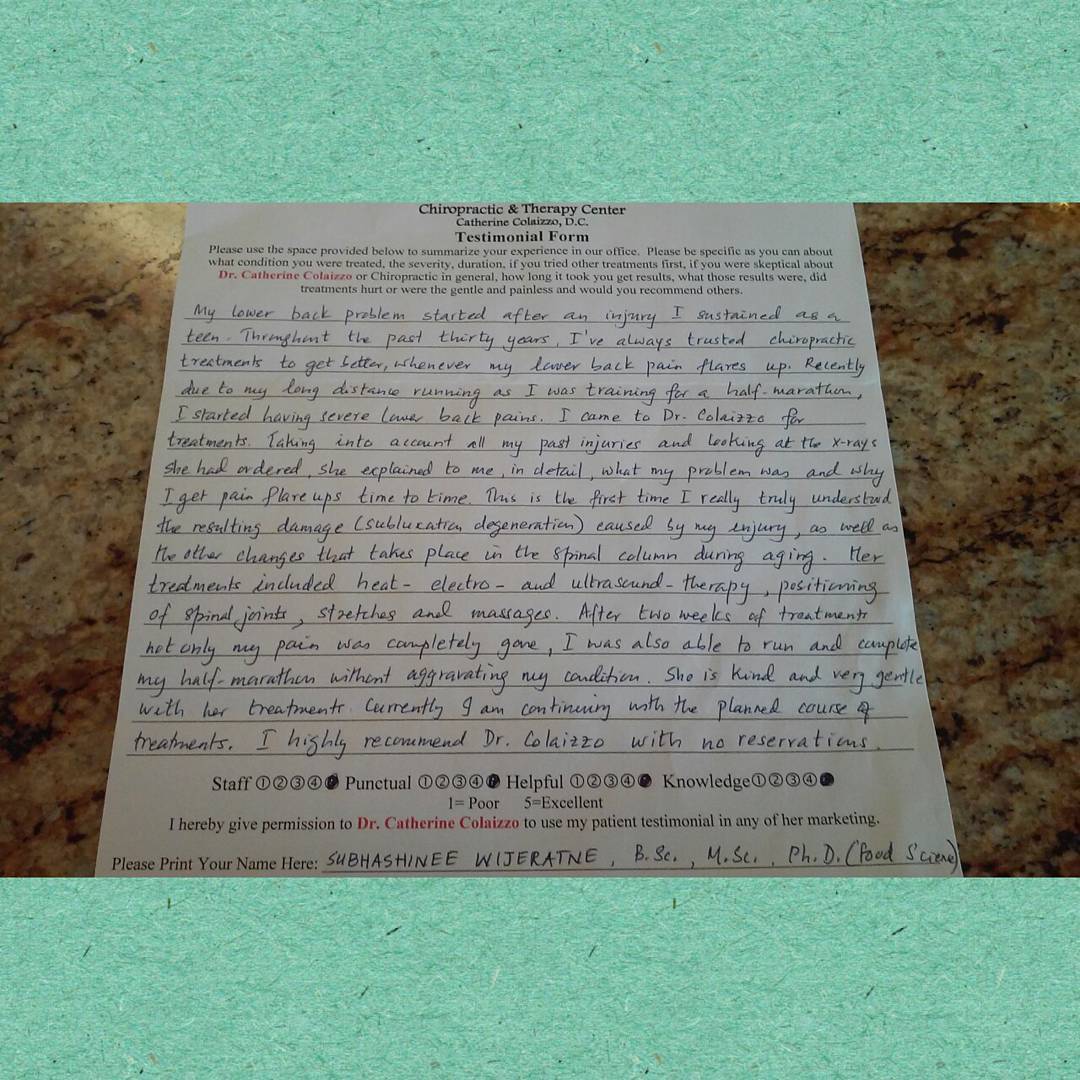 Chiropractic & Therapy Center
Catherine Colaizzo, D.C.
Testimonial Form
Please use the space provided below to summarize your experience in our office. Please be specific as you can about
what condition you were treated, the severity, duration, if you tried other treatments first, if you were skeptical about
Dr. Catherine Colaizzo or Chiropractic in general, how long it took you get results, what those results were, did
treatments hurt or were the gentle and painless and would you recommend others.
My lower back problem started after an injury I sustained as a
teen. Throughout the past thirty years, I've always trusted chiropractic
treatments to get better, whenever my lower back pain flares up. Recently
due to my long distance running as I was training for a half-marathon,
I started having severe lower back pains. I came to Dr. Colaizzo for
treatments. Taking into account all my past injuries and looking at the x-rays
she had ordered, she explained to me, in detail, what my problem was and why
I get pain flare ups time to time. This is the first time I really truly understood
the resulting damage (subluxation degeneration) caused by my injury, as well as
the other changes that takes place in the spinal column during aging. Her
treatments included heat- electro- and ultrasound-therapy, positioning
of spinal joints, stretches and massages. After two weeks of treatments
not only my pain was completely gone, I was also able to run and complete
my half-marathon without aggravating my condition. She is kind and very gentle
with her treatments. Currently I am continuing with the planned course of
treatments. I highly recommend Dr. Colaizzo with no reservations.
Staff ①②③④ Punctual ①②③④ Helpful ①②③④ Knowledge ①②③④
1= Poor 5=Excellent
I hereby give permission to Dr. Catherine Colaizzo to use my patient testimonial in any of her marketing.
Please Print Your Name Here: SUBHASHINEE WIJERATNE, B.Sc., M.Sc., Ph.D. (Food Science)